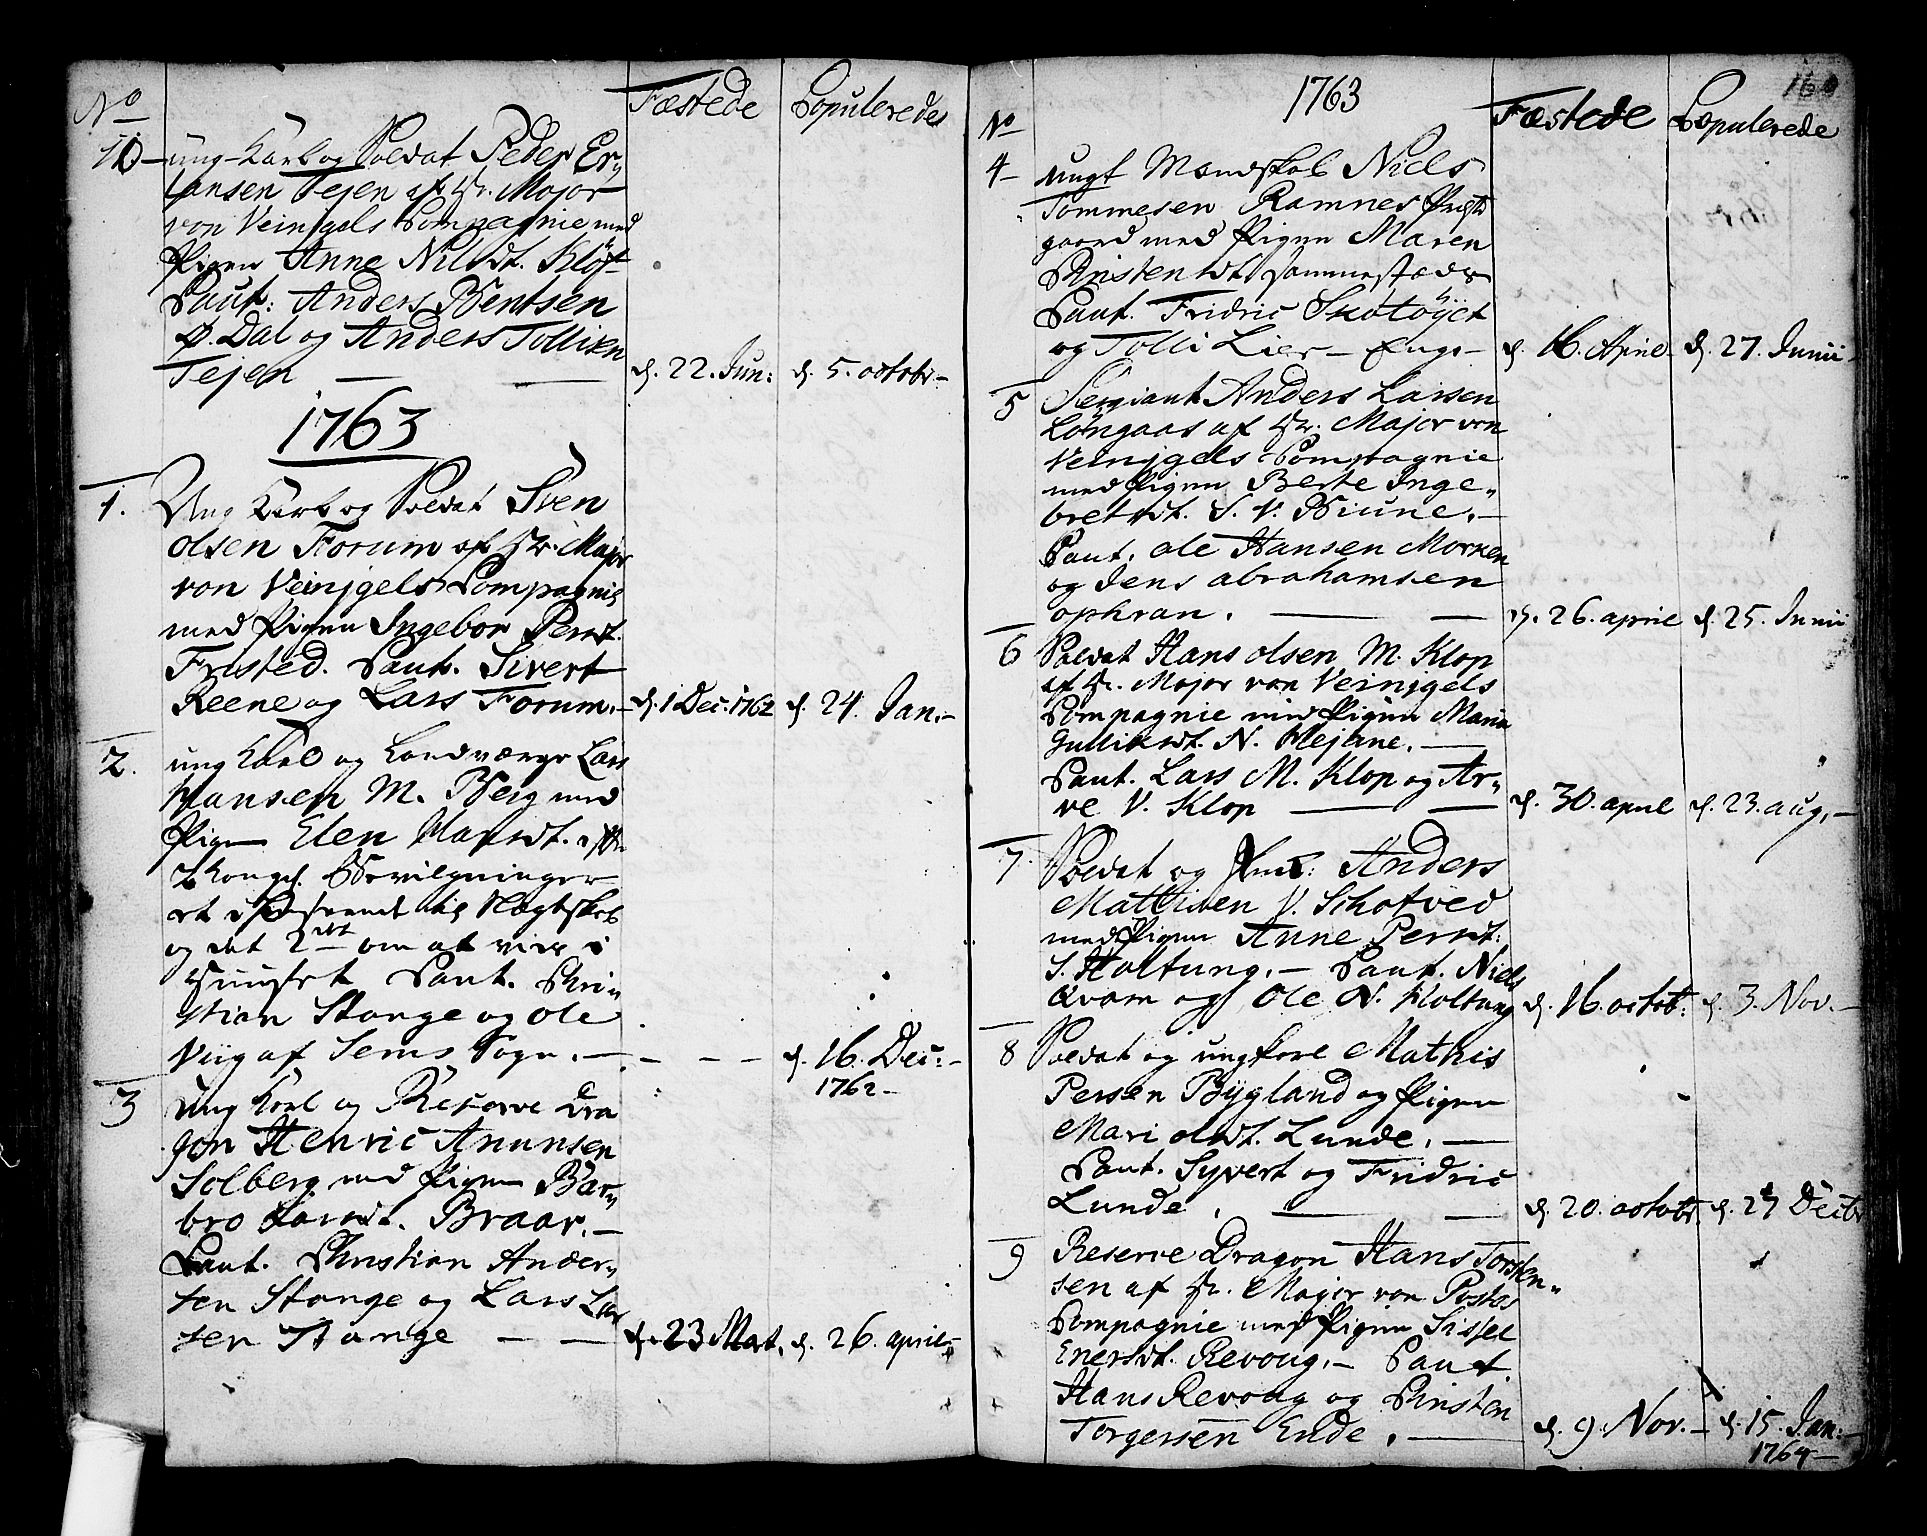 No Fæstede Copulerede
10 ung-Karl og Soldat Peder Er-
lansen Tejen af Hr. Major
von Veinjgels Compagnie med
Pigen Anne Nilsdt. Kløf
Caut: Anders Bentsen
Dal og Anders Tolliken
Tejen — d. 22. Jun: d. 5. octobr.
1763
1. Ung Karl og Soldat Sven
olsen Forum af Hr. Major
von Veinjgels Compagnie
med Pigen Ingebor Persdt.
Fristed. Caut. Sivert
Reene og Lars Forum. d. 1 Dec. 1762 d. 24. Jan.
2. ung Karl og Landværge Lars
Hansen M. Berg med
Pigen Elen Hansdt.
2 Kongl. Bevilgninger
til Ægteskab
og det 2det om at vies i
Huuset Caut. Chri-
stian Stange og Ole
Viig af Sems Sogn. — d. 16. Dec:
1762
3 ung Karl og Reserve Dra
gon Henric Anunsen
Solberg med Pigen Bar-
bro Larsdt. Braar.
Caut. Christian Ander-
sen Stange og Lars Lar
sen Stange — d. 23 Mart. d. 26. april
1763 160
No Fæstede Copulerede
4 ungt Mandskab Niels
Tommesen Ramnes Præste
gaard med Pigen Maren
Christensdt. sammestædes
Caut. Fridric Skotøyet
og Tolli Lier — Engs — d. 16. Aprie d. 27. Junii
5 Sergiant Anders Larsen
Løngaas af Hr. Major von
Veinjgels Compagnie
med Pigen Berte Inge-
bretsdt. S. V. Biune.
Caut. ole Hansen Morken
og Jens abrahamsen
ophran. — d. 26. aprie d. 25. Junii
6 Soldat Hans olsen M. Klop
af Hr. Major von Veinjgels
Compagnie med Pigen Maria
Gulliksdt. N. Hejane.
Caut. Lars M. Klop og Ar-
ve V. Klop — d. 30. aprie d. 23. aug.
7. Soldat og Anders
Mattisen V. Schotved
med Pigen Anne Persdt:
S. Holtung. — Caut. Niels
Qvam og Ole N. Holtung d. 16. octob: d. 3. Nov.
8 Soldat og ungkarl Mathis
Persen Bygland og Pigen
Mari olsdt. Lunde.
Caut. Syvert og Fridric
Lunde. — d. 20. octobr. d. 27 Decbr
9 Reserve Dragon Hans Torsten-
sen af Hr. Major von Postas
Compagnie med Pigen Sissel
Enersdt. Revoug. — Caut.
Hans Revoug og Christen
Torgersen Ende. — d. 9. Nov. d. 15. Jan:
1764